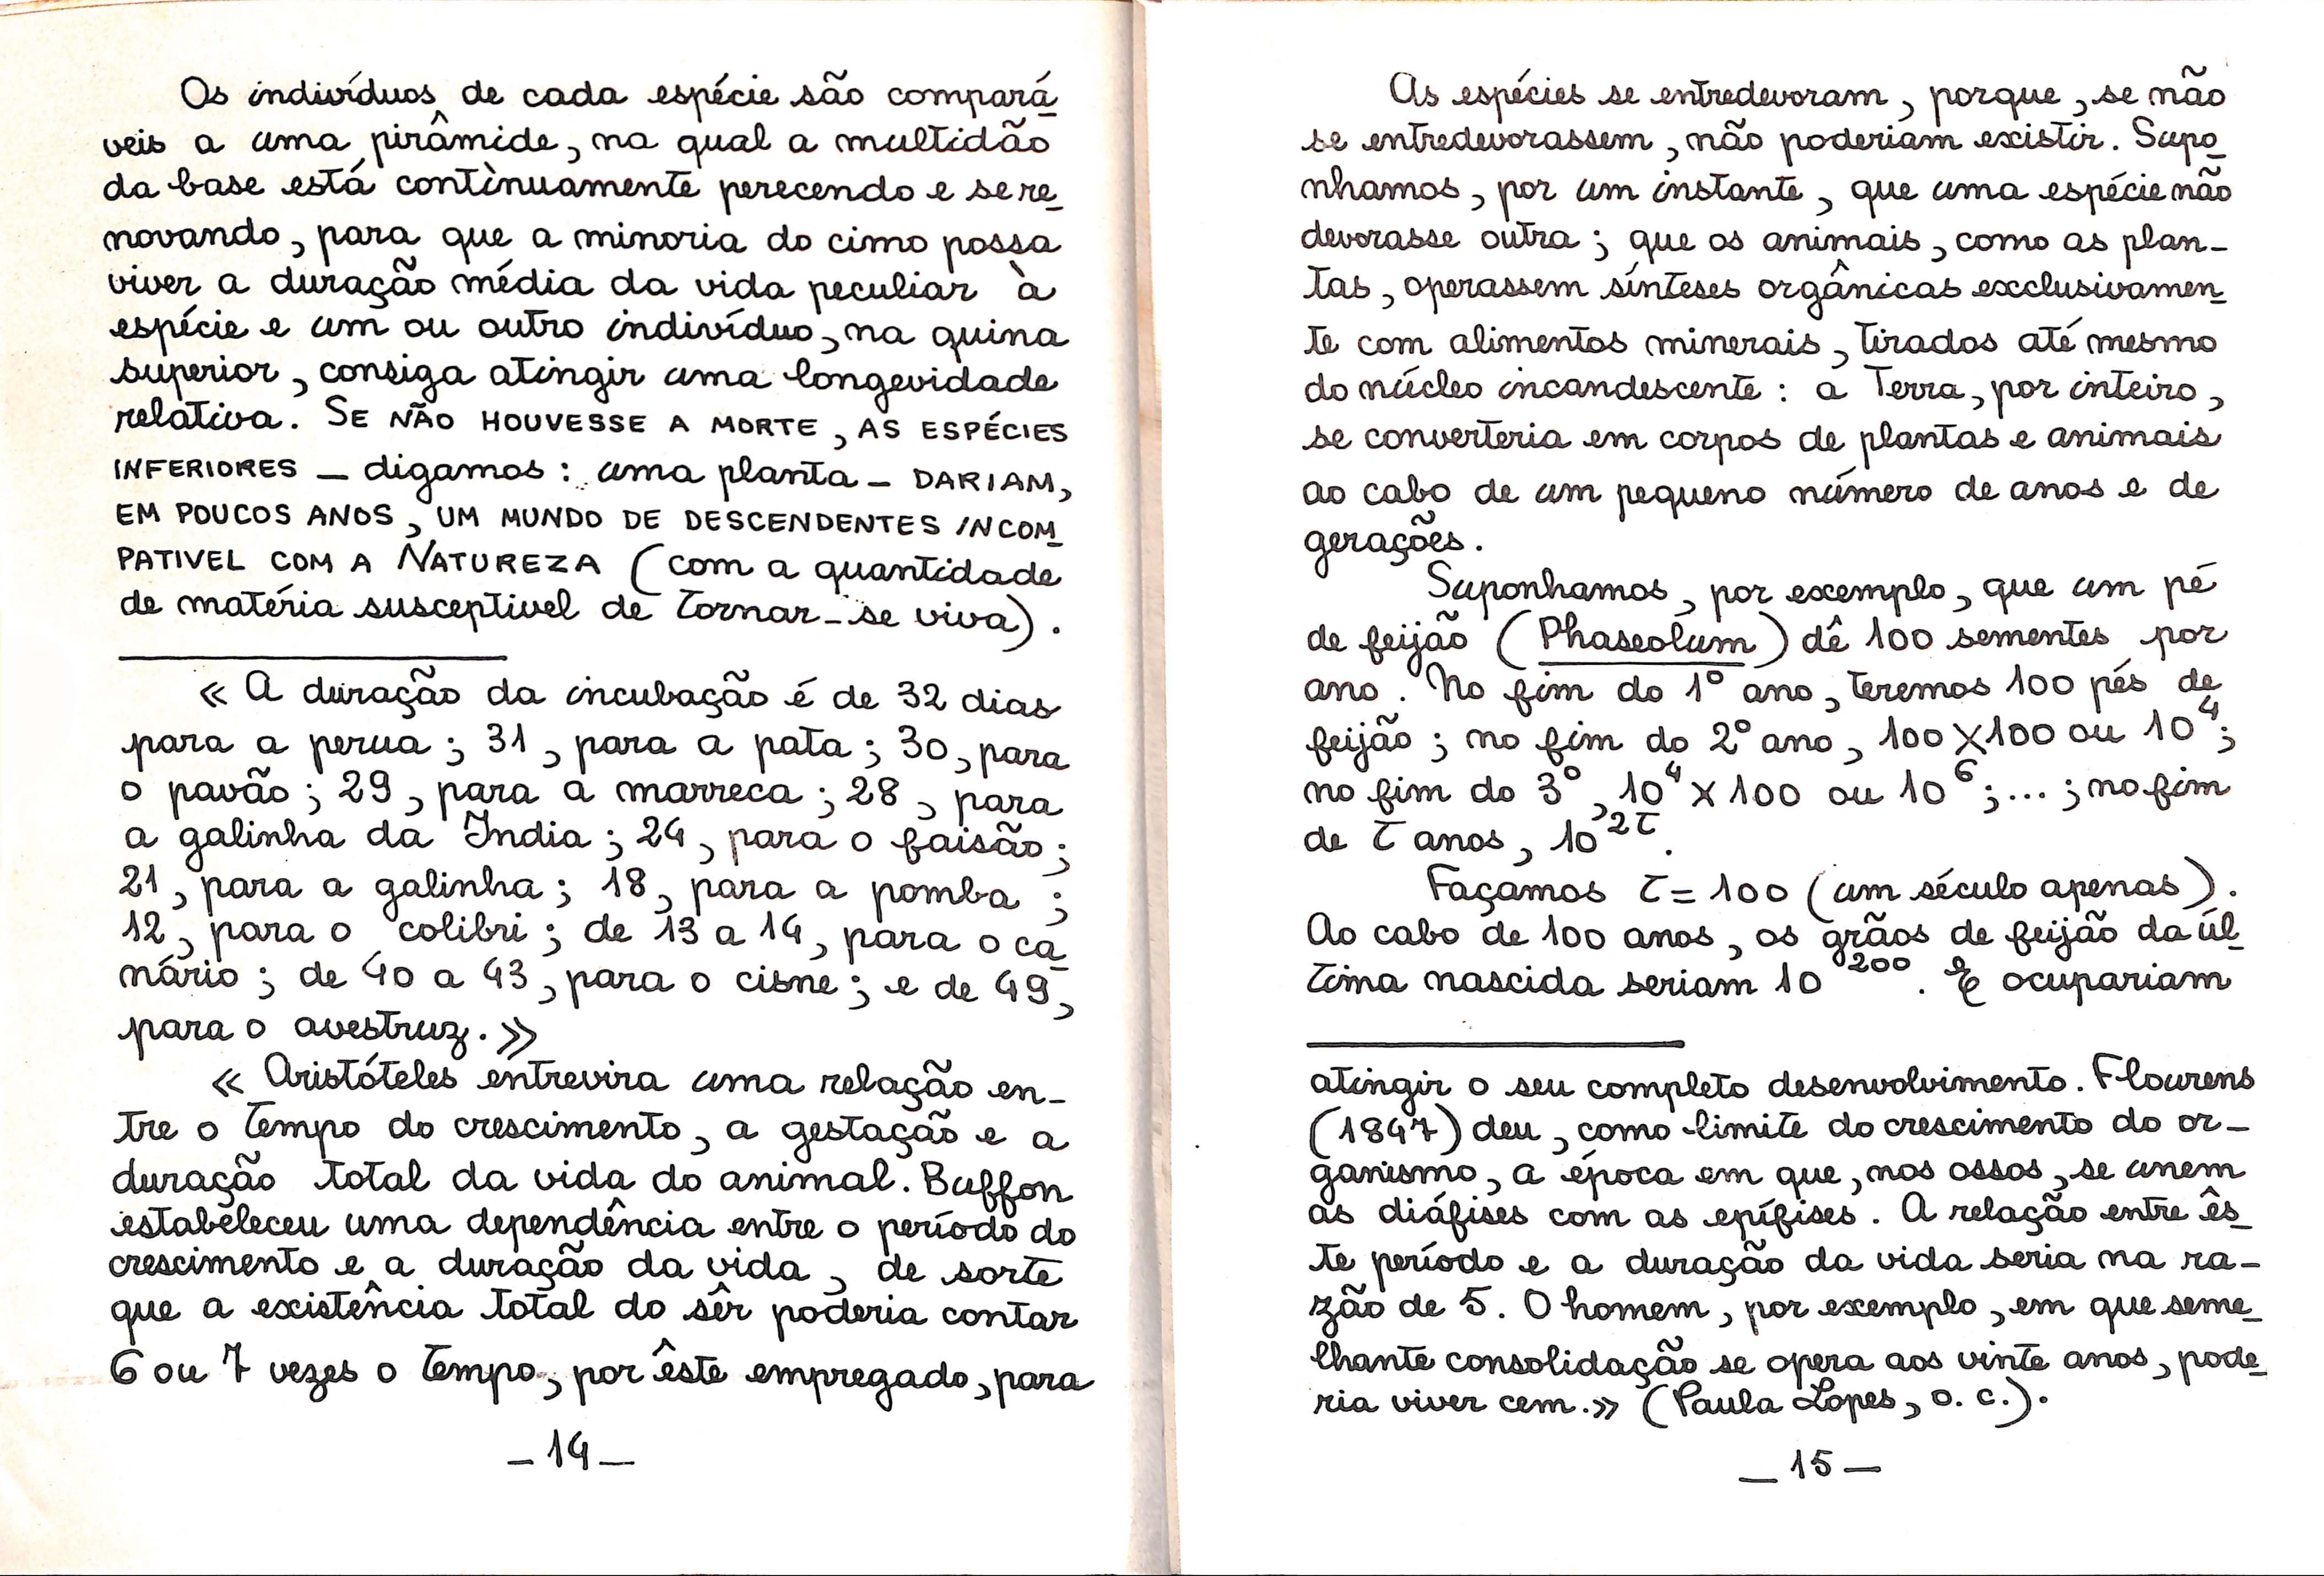 Os indivíduos de cada espécie são compará
veis a uma pirâmide, na qual a multidão
da base está contìnuamente perecendo e se re_
novando, para que a minoria do cimo possa
viver a duração média da vida peculiar à
espécie e um ou outro indivíduo, na quina
superior, consiga atingir uma longevidade
relativa. SE NÃO HOUVESSE A MORTE, AS ESPÉCIES
INFERIORES _ digamos: uma planta _ DARIAM,
EM POUCOS ANOS, UM MUNDO DE DESCENDENTES INCOM_
PATIVEL COM A NATUREZA (com a quantidade
de matéria susceptivel de tornar-se viva).
« A duração da incubação é de 32 dias
para a perua; 31, para a pata; 30, para
o pavão; 29, para a marreca; 28, para
a galinha da Índia; 24, para o faisão;
21, para a galinha; 18, para a pomba;
12, para o colibri; de 13 a 14, para o ca_
nário; de 40 a 43, para o cisne; e de 49,
para o avestruz. »
« Aristóteles entrevira uma relação en-
tre o tempo do crescimento, a gestação e a
duração total da vida do animal. Buffon
estabeleceu uma dependência entre o período do
crescimento e a duração da vida, de sorte
que a existência total do sêr poderia contar
6 ou 7 vezes o tempo, por êste empregado, para
_ 14 _
As espécies se entredevoram, porque, se não
se entredevorassem, não poderiam existir. Supo_
nhamos, por um instante, que uma espécie não
devorasse outra; que os animais, como as plan-
tas, operassem sínteses orgânicas exclusivamen_
te com alimentos minerais, tirados até mesmo
do núcleo incandescente: a Terra, por inteiro,
se converteria em corpos de plantas e animais
ao cabo de um pequeno número de anos e de
gerações.
Suponhamos, por exemplo, que um pé
de feijão (Phaseolum) dê 100 sementes por
ano. No fim do 1º ano, teremos 100 pés de
feijão; no fim do 2º ano, 100 X 100 ou 10⁴;
no fim do 3º, 10⁴ x 100 ou 10⁶; ... ; no fim
de t anos, 10²ᵗ.
Façamos t = 100 (um século apenas).
Ao cabo de 100 anos, os grãos de feijão da úl_
tima nascida seriam 10²⁰⁰. E ocupariam
atingir o seu completo desenvolvimento. Flourens
(1847) deu, como limite do crescimento do or-
ganismo, a época em que, nos ossos, se unem
as diáfises com as epífises. A relação entre ês_
te período e a duração da vida seria na ra-
zão de 5. O homem, por exemplo, em que seme_
lhante consolidação se opera aos vinte anos, pode_
ria viver cem. » (Paula Lopes, o. c.).
_ 15 _